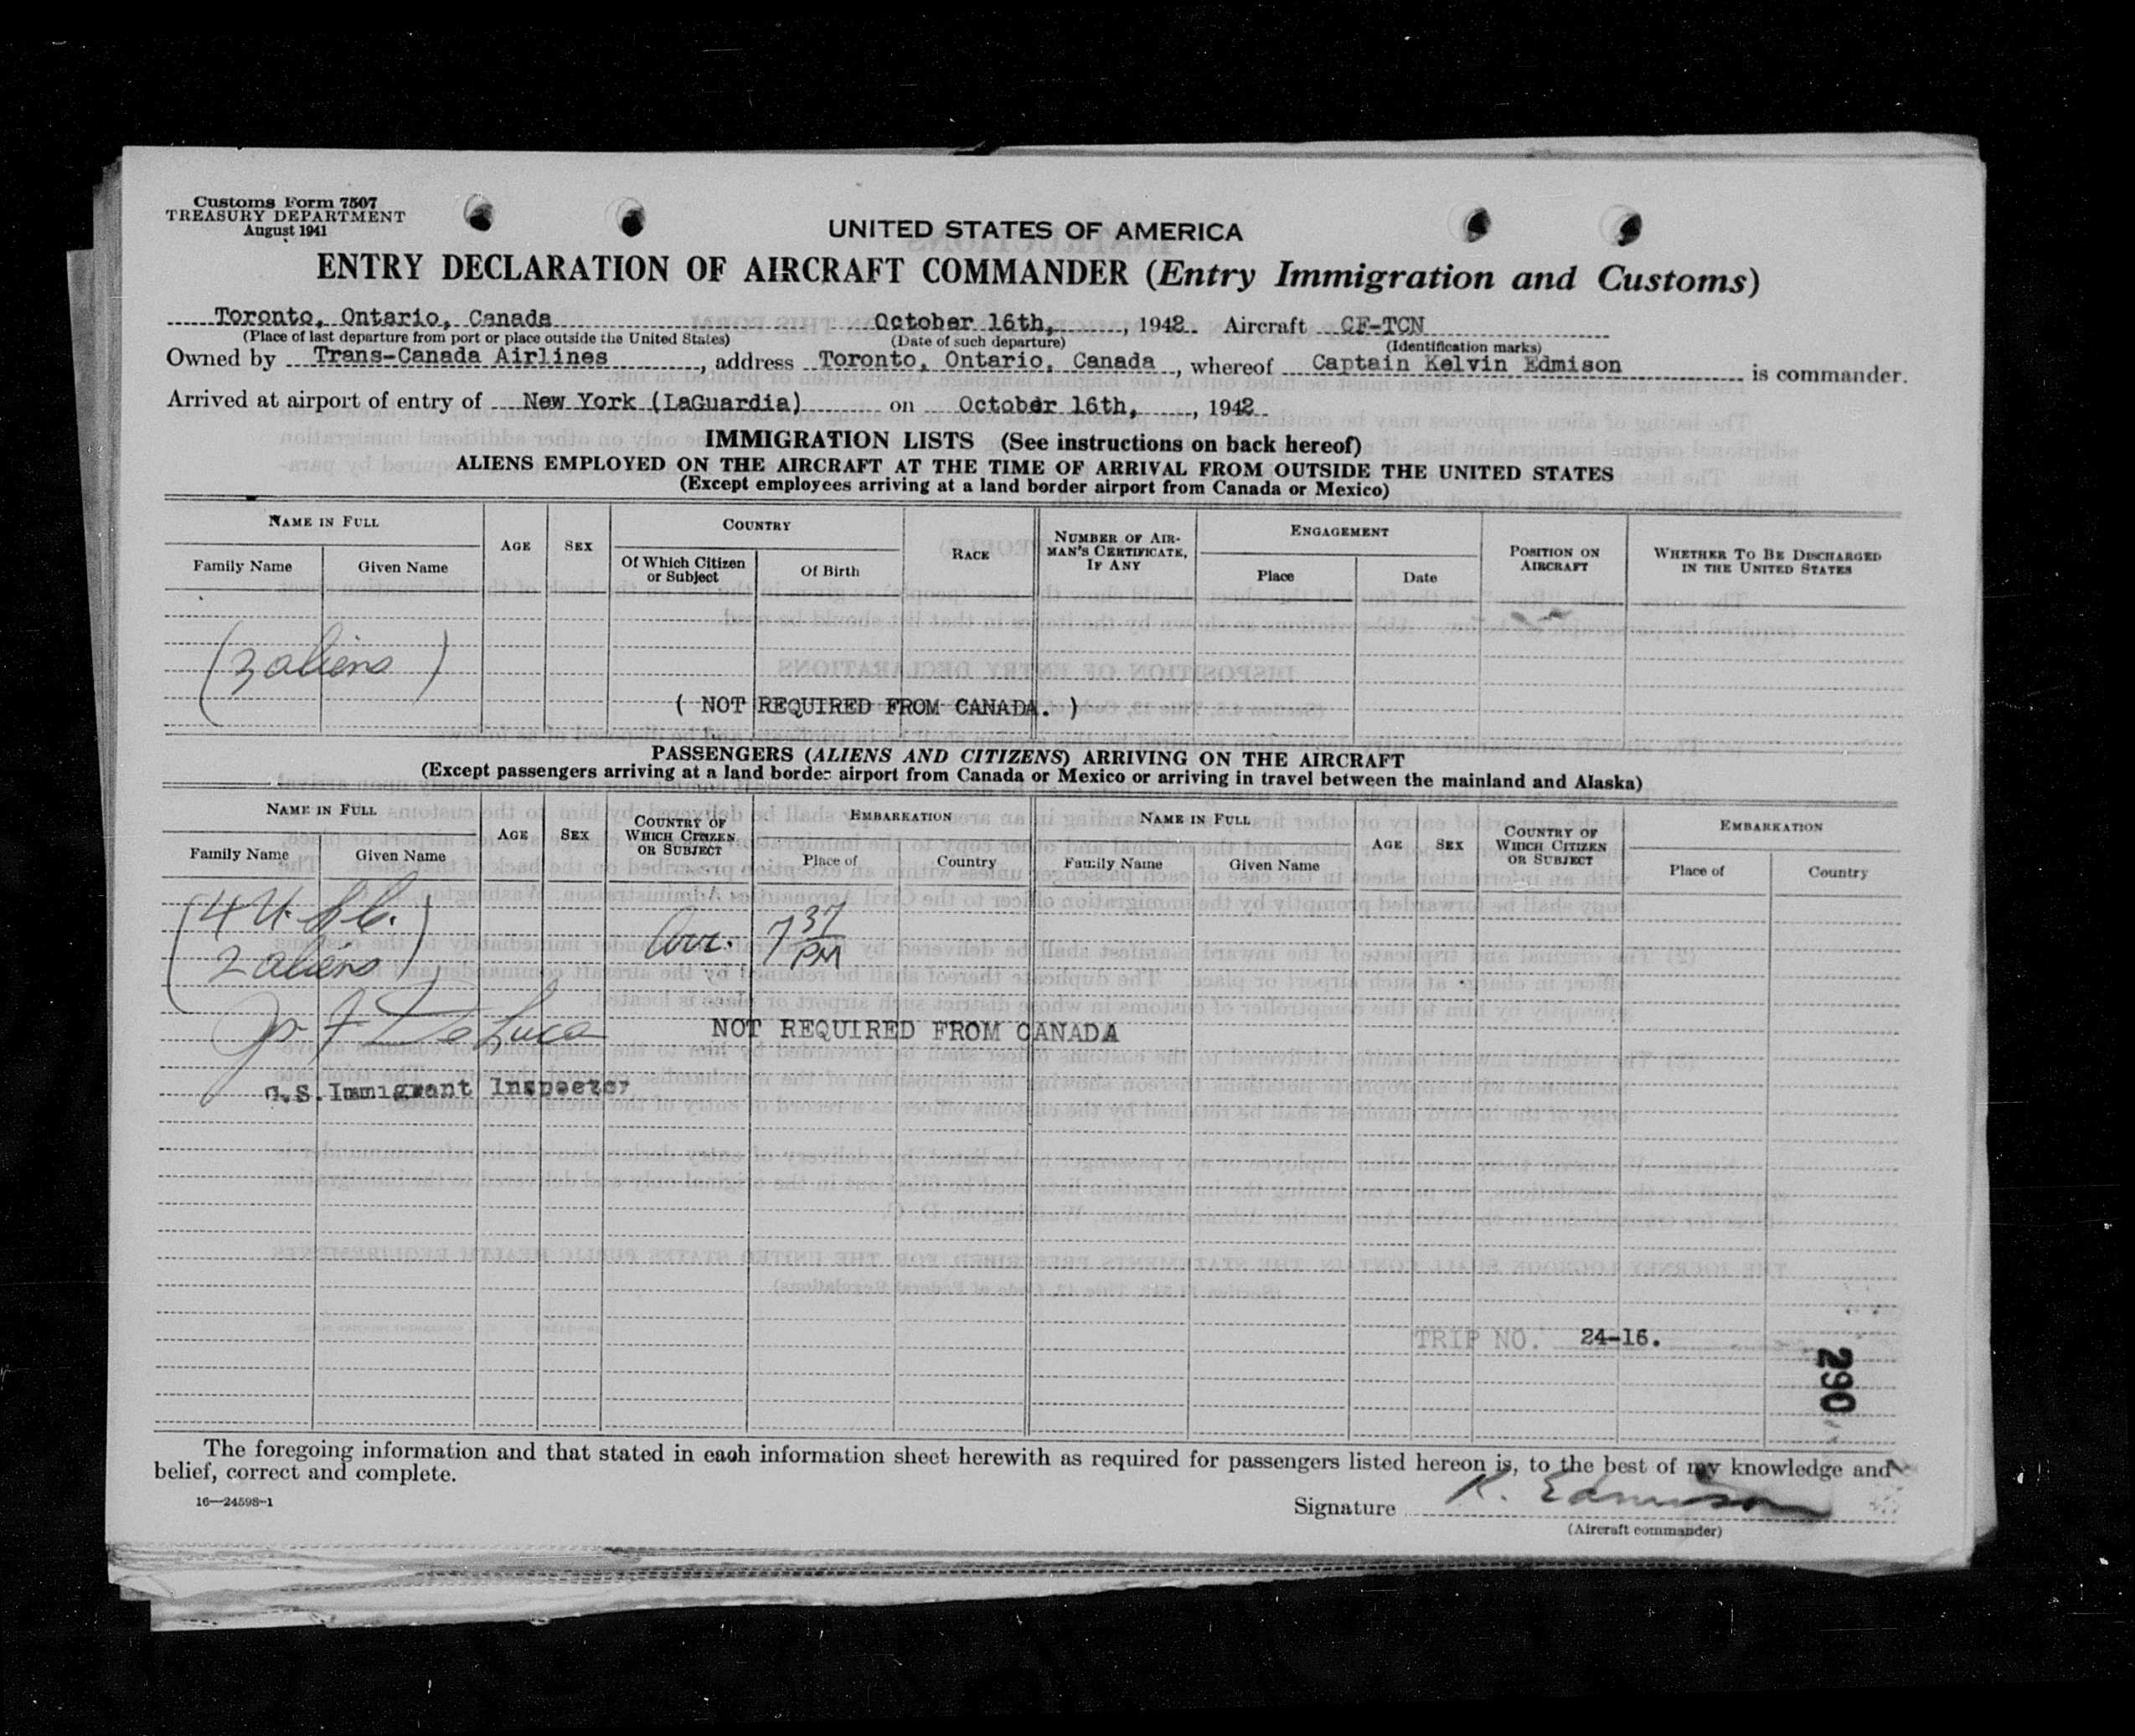 Customs Form 7507
TREASURY DEPARTMENT
August 1941
UNITED STATES OF AMERICA
ENTRY DECLARATION OF AIRCRAFT COMMANDER (Entry Immigration and Customs)
Toronto, Ontario, Canada October 16th, , 1942 Aircraft CF-TCN
(Place of last departure from port or place outside the United States) (Date of such departure) (Identification marks)
Owned by Trans-Canada Airlines , address Toronto, Ontario, Canada , whereof Captain Kelvin Edmison is commander.
Arrived at airport of entry of New York (LaGuardia) on October 16th, , 1942
IMMIGRATION LISTS (See instructions on back hereof)
ALIENS EMPLOYED ON THE AIRCRAFT AT THE TIME OF ARRIVAL FROM OUTSIDE THE UNITED STATES
(Except employees arriving at a land border airport from Canada or Mexico)
NAME IN FULL AGE SEX COUNTRY RACE NUMBER OF AIRMAN'S CERTIFICATE, IF ANY ENGAGEMENT POSITION ON AIRCRAFT WHETHER TO BE DISCHARGED IN THE UNITED STATES
Family Name Given Name Of Which Citizen or Subject Of Birth Place Date
(3 aliens)
( NOT REQUIRED FROM CANADA. )
PASSENGERS (ALIENS AND CITIZENS) ARRIVING ON THE AIRCRAFT
(Except passengers arriving at a land border airport from Canada or Mexico or arriving in travel between the mainland and Alaska)
NAME IN FULL AGE SEX COUNTRY OF WHICH CITIZEN OR SUBJECT EMBARKATION NAME IN FULL AGE SEX COUNTRY OF WHICH CITIZEN OR SUBJECT EMBARKATION
Family Name Given Name Place of Country Family Name Given Name Place of Country
(4 U.S.C.
2 aliens)
Arr. 7 37 PM
De Luca
NOT REQUIRED FROM CANADA
U.S. Immigrant Inspector
TRIP NO. 24-16.
290
The foregoing information and that stated in each information sheet herewith as required for passengers listed hereon is, to the best of my knowledge and
belief, correct and complete.
16—24598-1
Signature K. Edmison
(Aircraft commander)